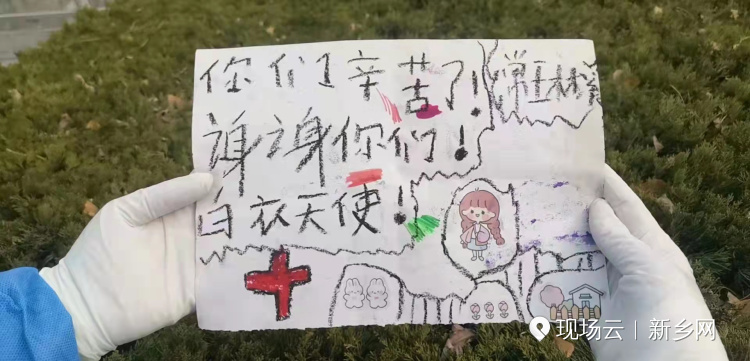 你们辛苦了!
谢谢你们!
白衣天使!
现场云 | 新乡网